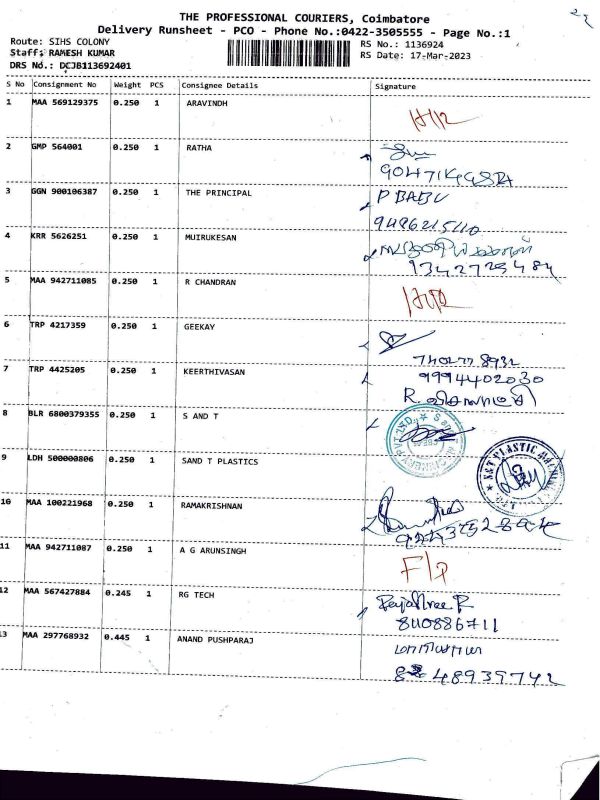 THE PROFESSIONAL COURIERS, Coimbatore
Delivery Runsheet - PCO - Phone No.:0422-3505555 - Page No.:1
Route: SIHS COLONY
RS No.: 1136924
Staff: RAMESH KUMAR
RS Date: 17-Mar-2023
DRS No.: DCJB113692401
S No Consignment No Weight PCS Consignee Details Signature
1 MAA 569129375 0.250 1 ARAVINDH
2 GMP 564001 0.250 1 RATHA
3 GGN 900106387 0.250 1 THE PRINCIPAL P BABU
9489621540
4 KRR 5626251 0.250 1 MUIRUKESAN
9342725484
5 MAA 942711085 0.250 1 R CHANDRAN
6 TRP 4217359 0.250 1 GEEKAY
7402778932
7 TRP 4425205 0.250 1 KEERTHIVASAN 9994402030
R.
8 BLR 6800379355 0.250 1 S AND T
9 LDH 500000806 0.250 1 SAND T PLASTICS
10 MAA 100221968 0.250 1 RAMAKRISHNAN
11 MAA 942711087 0.250 1 A G ARUNSINGH
12 MAA 567427884 0.245 1 RG TECH Rajashree R
840886711
13 MAA 297768932 0.445 1 ANAND PUSHPARAJ
48939742